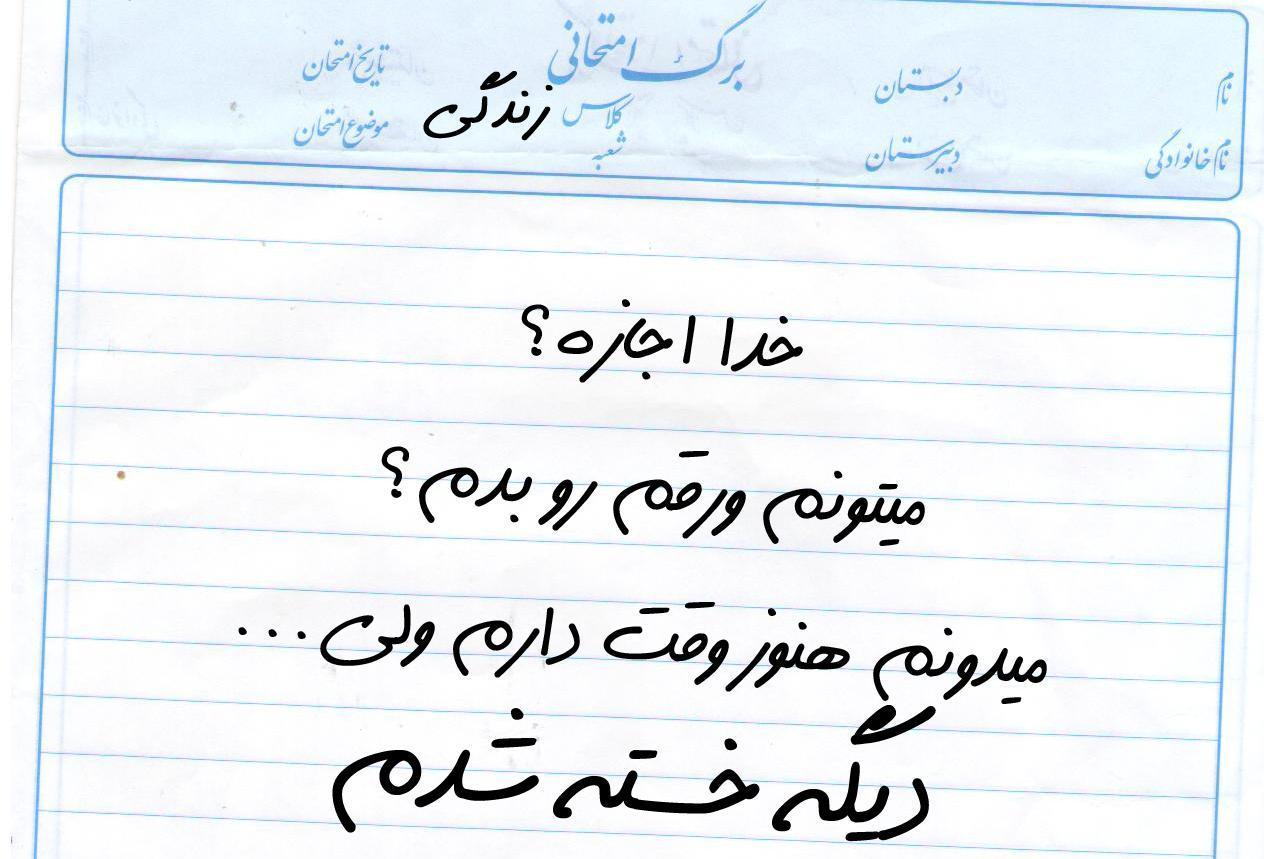 برگ امتحانی
نام
دبستان
کلاس زندگی
تاریخ امتحان
نام خانوادگی
دبیرستان
شعبه
موضوع امتحان
خدا اجازه؟
میتونم ورقم رو بدم؟
میدونم هنوز وقت دارم ولی...
دیگه خسته شدم